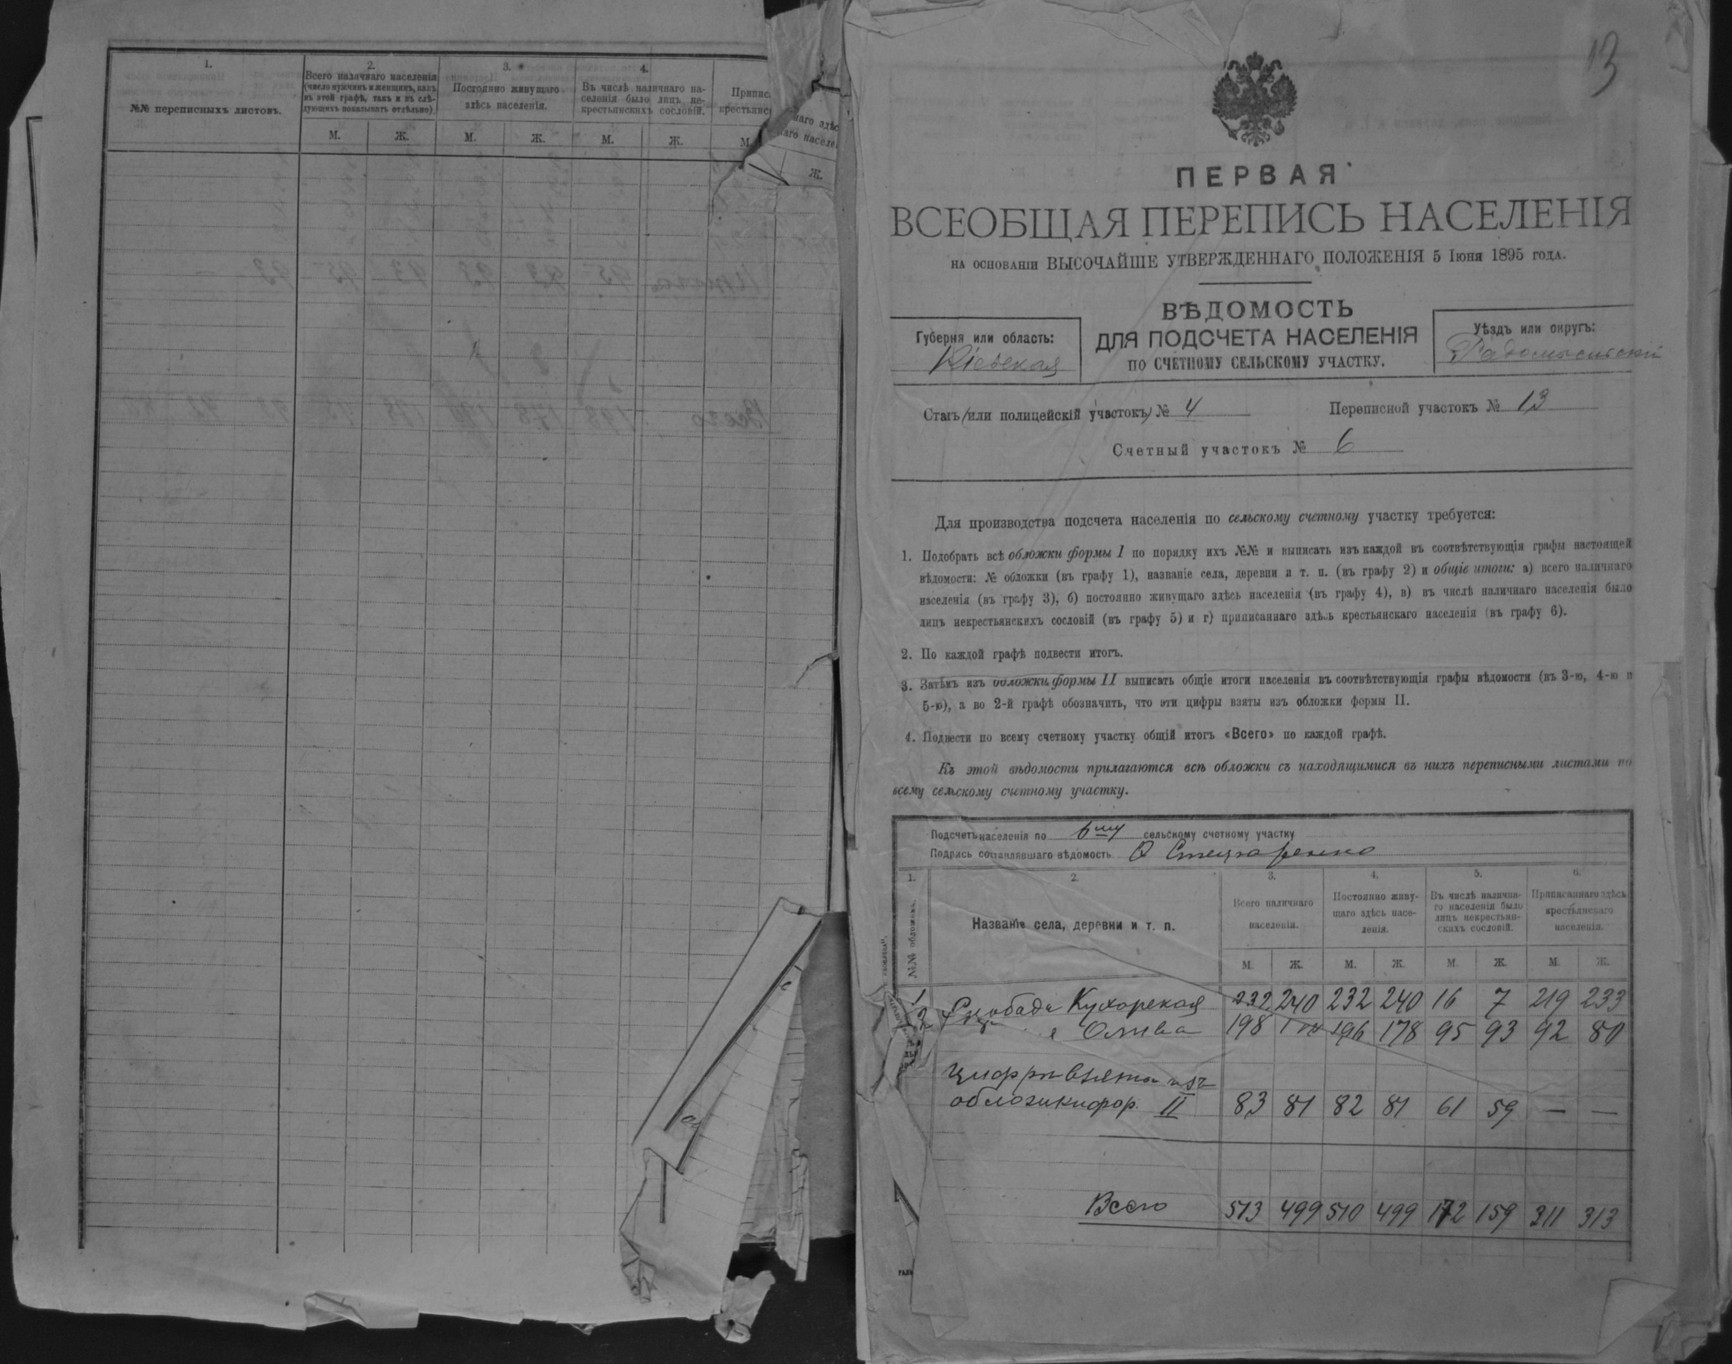 1.
2.
3.
4.
№№ переписныхъ листовъ.
Всего наличнаго населенія
(число мужчинъ и женщинъ, какъ
въ этой графѣ, такъ и въ слѣ-
дующихъ показывать отдѣльно).
Постоянно живущаго
здѣсь населенія.
Въ числѣ наличнаго на-
селенія было лицъ не-
крестьянскихъ сословій.
М. Ж. М. Ж. М. Ж. М.
Ж.
13
ПЕРВАЯ
ВСЕОБЩАЯ ПЕРЕПИСЬ НАСЕЛЕНІЯ
НА ОСНОВАНІИ ВЫСОЧАЙШЕ УТВЕРЖДЕННАГО ПОЛОЖЕНІЯ 5 Іюня 1895 ГОДА.
ВѢДОМОСТЬ
ДЛЯ ПОДСЧЕТА НАСЕЛЕНІЯ
ПО СЧЕТНОМУ СЕЛЬСКОМУ УЧАСТКУ.
Губернія или область:
Кіевская
Уѣздъ или округъ:
Радомысльскій
Станъ (или полицейскій участокъ) № 4 Переписной участокъ № 13
Счетный участокъ № 6
Для производства подсчета населенія по сельскому счетному участку требуется:
1. Подобрать всѣ обложки формы I по порядку ихъ №№ и выписать изъ каждой въ соотвѣтствующія графы настоящей
вѣдомости: № обложки (въ графу 1), названіе села, деревни и т. п. (въ графу 2) и общіе итоги: а) всего наличнаго
населенія (въ графу 3), б) постоянно живущаго здѣсь населенія (въ графу 4), в) въ числѣ наличнаго населенія было
лицъ некрестьянскихъ сословій (въ графу 5) и г) приписаннаго здѣсь крестьянскаго населенія (въ графу 6).
2. По каждой графѣ подвести итогъ.
3. Затѣмъ изъ обложки формы II выписать общіе итоги населенія въ соотвѣтствующія графы вѣдомости (въ 3-ю, 4-ю и
5-ю), а во 2-й графѣ обозначить, что эти цифры взяты изъ обложки формы II.
4. Подвести по всему счетному участку общій итогъ «Всего» по каждой графѣ.
Къ этой вѣдомости прилагаются всѣ обложки съ находящимися въ нихъ переписными листами по
всему сельскому счетному участку.
Подсчетъ населенія по 6му сельскому счетному участку
Подпись составлявшаго вѣдомость
1. 2. 3. 4. 5. 6.
№№ обложекъ.
Названіе села, деревни и т. п.
Всего наличнаго
населенія.
Постоянно живу-
щаго здѣсь насе-
ленія.
Въ числѣ налична-
го населенія было
лицъ некрестьян-
скихъ сословій.
Приписаннаго здѣсь
крестьянскаго
населенія.
М. Ж. М. Ж. М. Ж. М. Ж.
1 Слобода Кухарская 232 240 232 240 16 7 219 233
2 Олива 198 196 178 95 93 92 80
Цифры взяты изъ
обложки фор. II 83 81 82 81 61 59 — —
Всего 513 499 510 499 172 159 311 313